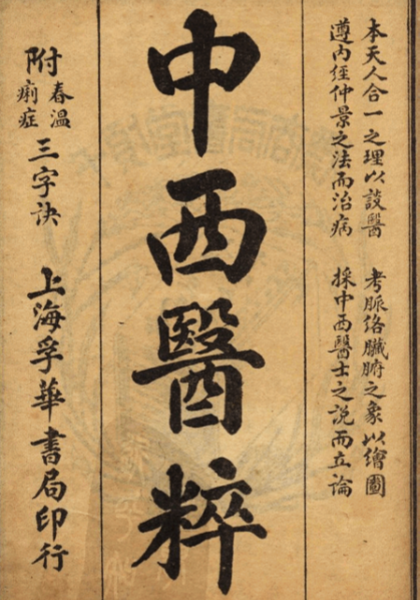 本天人合一之理以談醫 考脈絡臟腑之象以繪圖
遵內經仲景之法而治病 採中西醫士之說而立論
中西醫粹
附春溫痢症三字訣 上海孚華書局印行